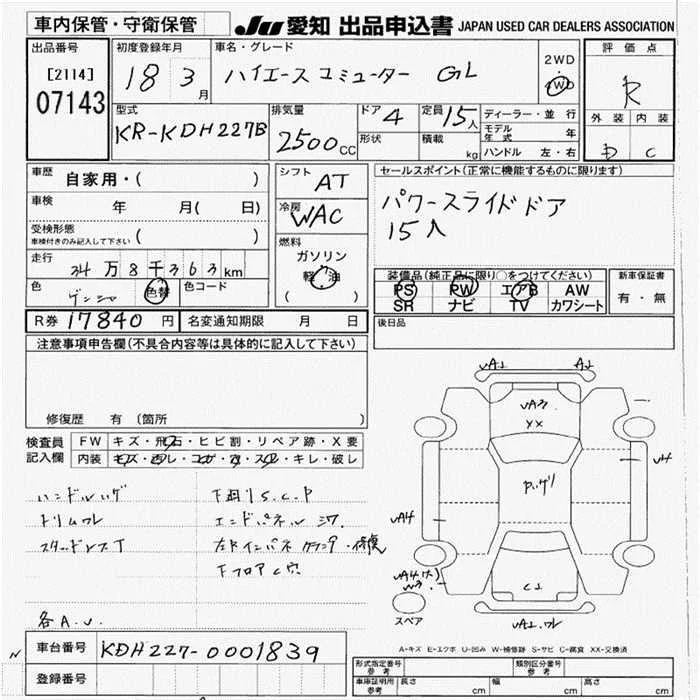 車内保管・守衛保管
JU 愛知 出品申込書 JAPAN USED CAR DEALERS ASSOCIATION
出品番号
[2114]
07143
初度登録年月
18 3月
車名・グレード
ハイエースコミューター GL
2WD
4WD
評価点
R
外装 内装
D C
型式
KR-KDH227B
排気量
2500cc
ドア 4
形状
定員 15人
積載 kg
ディーラー・並行
モデル年式 年
ハンドル 左・右
車歴 自家用・( )
車検 年 月( 日)
受検形態
車検付きのみ記入して下さい ( )
走行 34万8千363km
色 色替 色コード
シフト AT
冷房 WAC
燃料
ガソリン
軽油
( )
セールスポイント(正常に機能するものに限ります)
パワースライドドア
15人
装備品(純正品に限り○をつけてください)
PS PW エアB AW
SR ナビ TV カワシート
新車保証書
有・無
後日品
R券 17840円 名変通知期限 月 日
注意事項申告欄(不具合内容等は具体的に記入して下さい)
修復歴 有 〔箇所 〕
検査員記入欄
FW キズ・飛石・ヒビ割・リペア跡・X要
内装 キズ・西レ・コゲ・穴・スレ・キレ・破レ
ハンドルハゲ 下回りS.C.P
トリムワレ エンドパネル
スタッドレスT
下フロアC穴
各A.U.
車台番号 KDH227-0001839
登録番号
VA2 A2
VA3
XX
V4
VA4
C2
スペア
A-キズ E-エクボ U-凹み W-補修跡 S-サビ C-腐食 XX-交換済
形式指定番号 参考 類別区分番号 参考
車庫証明用 参考 長さ cm 幅 cm 高さ cm